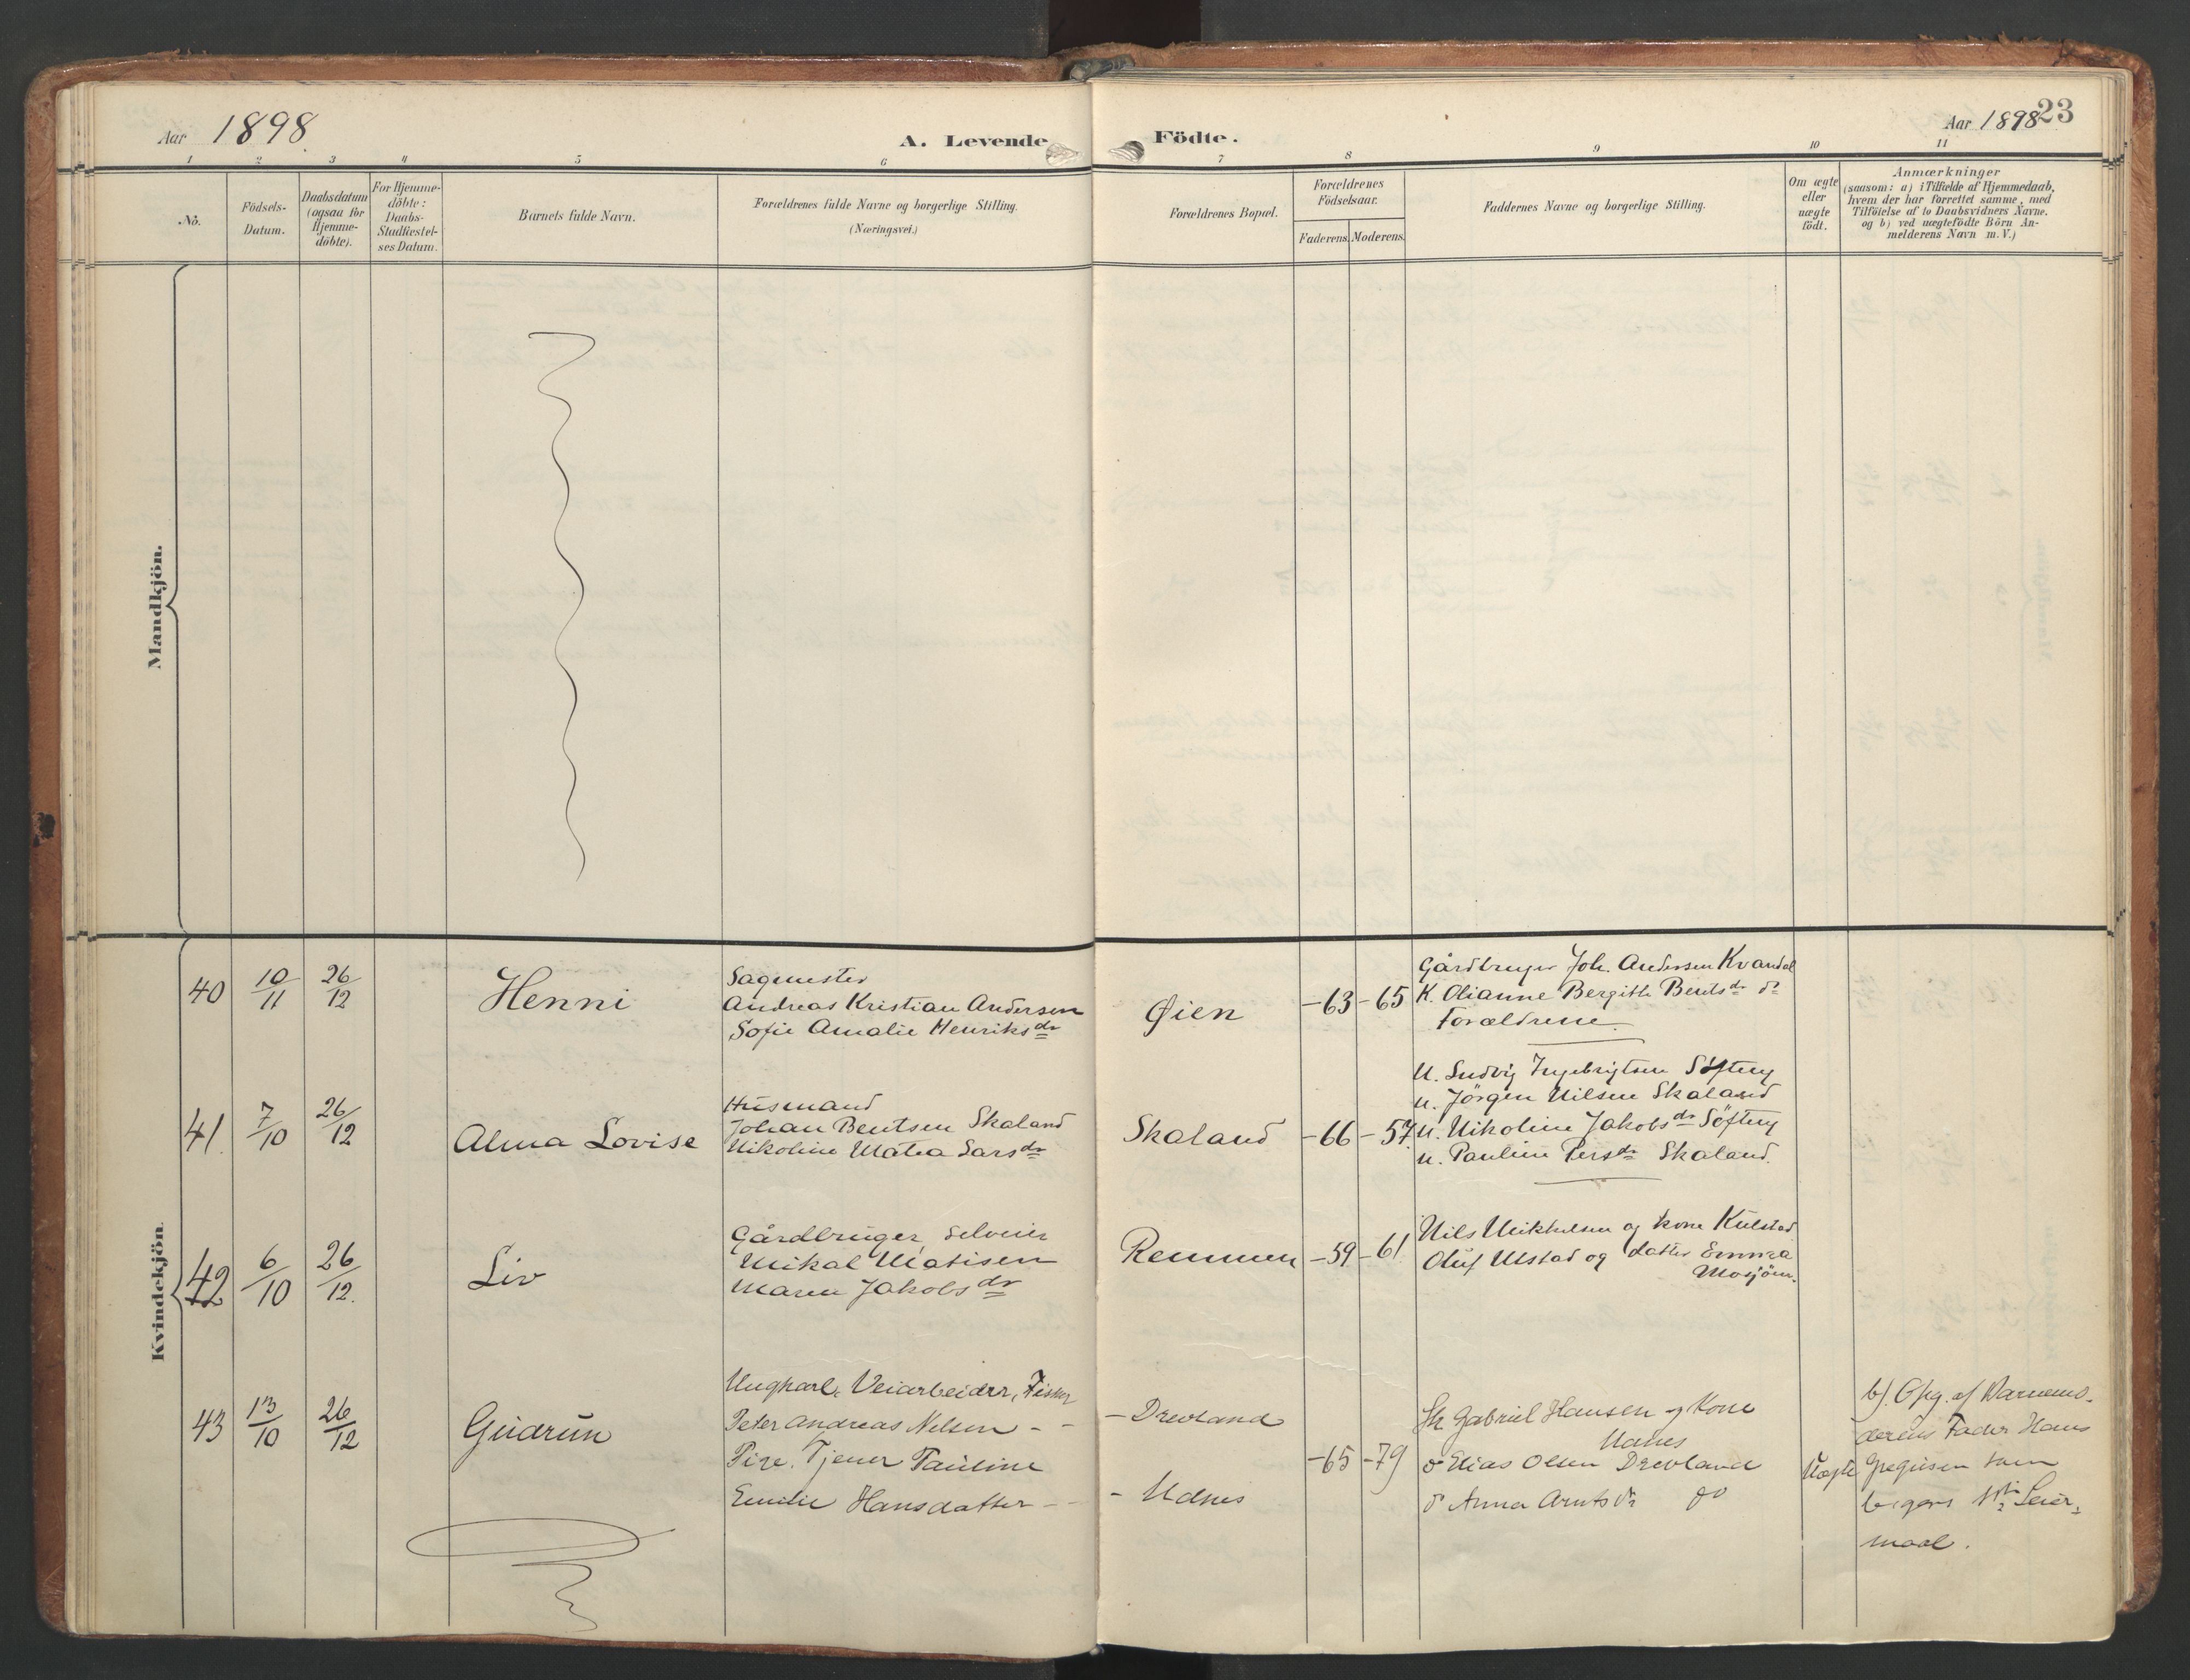 Aar 1898.
A. Levende
Födte.
Aar 1898
23
1 2 3 4 5 6 7 8 9 10 11
No.
Födsels-
Datum.
Daabsdatum
(ogsaa for
Hjemme-
döbte).
For Hjemme-
döbte:
Daabs-
Stadfæstel-
ses Datum.
Barnets fulde Navn.
Forældrenes fulde Navne og borgerlige Stilling.
(Næringsvei.)
Forældrenes Bopæl.
Forældrenes
Födselsaar.
Faderens. Moderens.
Faddernes Navne og borgerlige Stilling.
Om ægte
eller
uægte
födt.
Anmærkninger
(saasom: a) i Tilfælde af Hjemmedaab,
hvem der har forrettet samme, med
Tilföielse af to Daabsvidners Navne.
og b) ved uægtefödte Börn An-
melderens Navn m. V.)
Mandkjön.
Kvindekjön.
40
10/11
26/12
Henni
Sagmester
Andreas Kristian Andersen
Sofie Amalie Henriksdr
Øien
-63
-65
Gårdbruger Joh. Andersen Kvandal
K. Olianne Bergitte Bentsdr do
Forældrene
41.
7/10
26/12
Alma Lovise
Husmand
Johan Bentsen Skaland
Nikoline Matea Larsdr
Skaland
-66
-57
U. Ludvig Ingebrigtsen Söfting
u. Jörgen Nilsen Skaland
u. Nikoline Jakobsdr Söfting
u. Pauline Persdr Skaland.
42
6/10
26/12.
Liv
Gårdbruger, Selveier
Mikal Matisen
Maren Jakobsdr
Remmen
-59
-61
Nils Mikkelsen og kone Kulstad
Oluf Ulstad og datter Emma
Mosjöen.
43
13/10
26/12
Gudrun
Ungkarl, Veiarbeider, Fisker
Peter Andreas Nelsen - -
Pige. Tjener Pauline
Emilie Hansdatter - -
- Drevland
- Udnes
-65
-79
Gabriel Hansen og Kone
Udnes
Elias Olsen Drevland
Anna Arntsdr do
Uægte
b). Opg. af Barnemo-
derens Fader Hans
begges 1ste Leier-
maal.